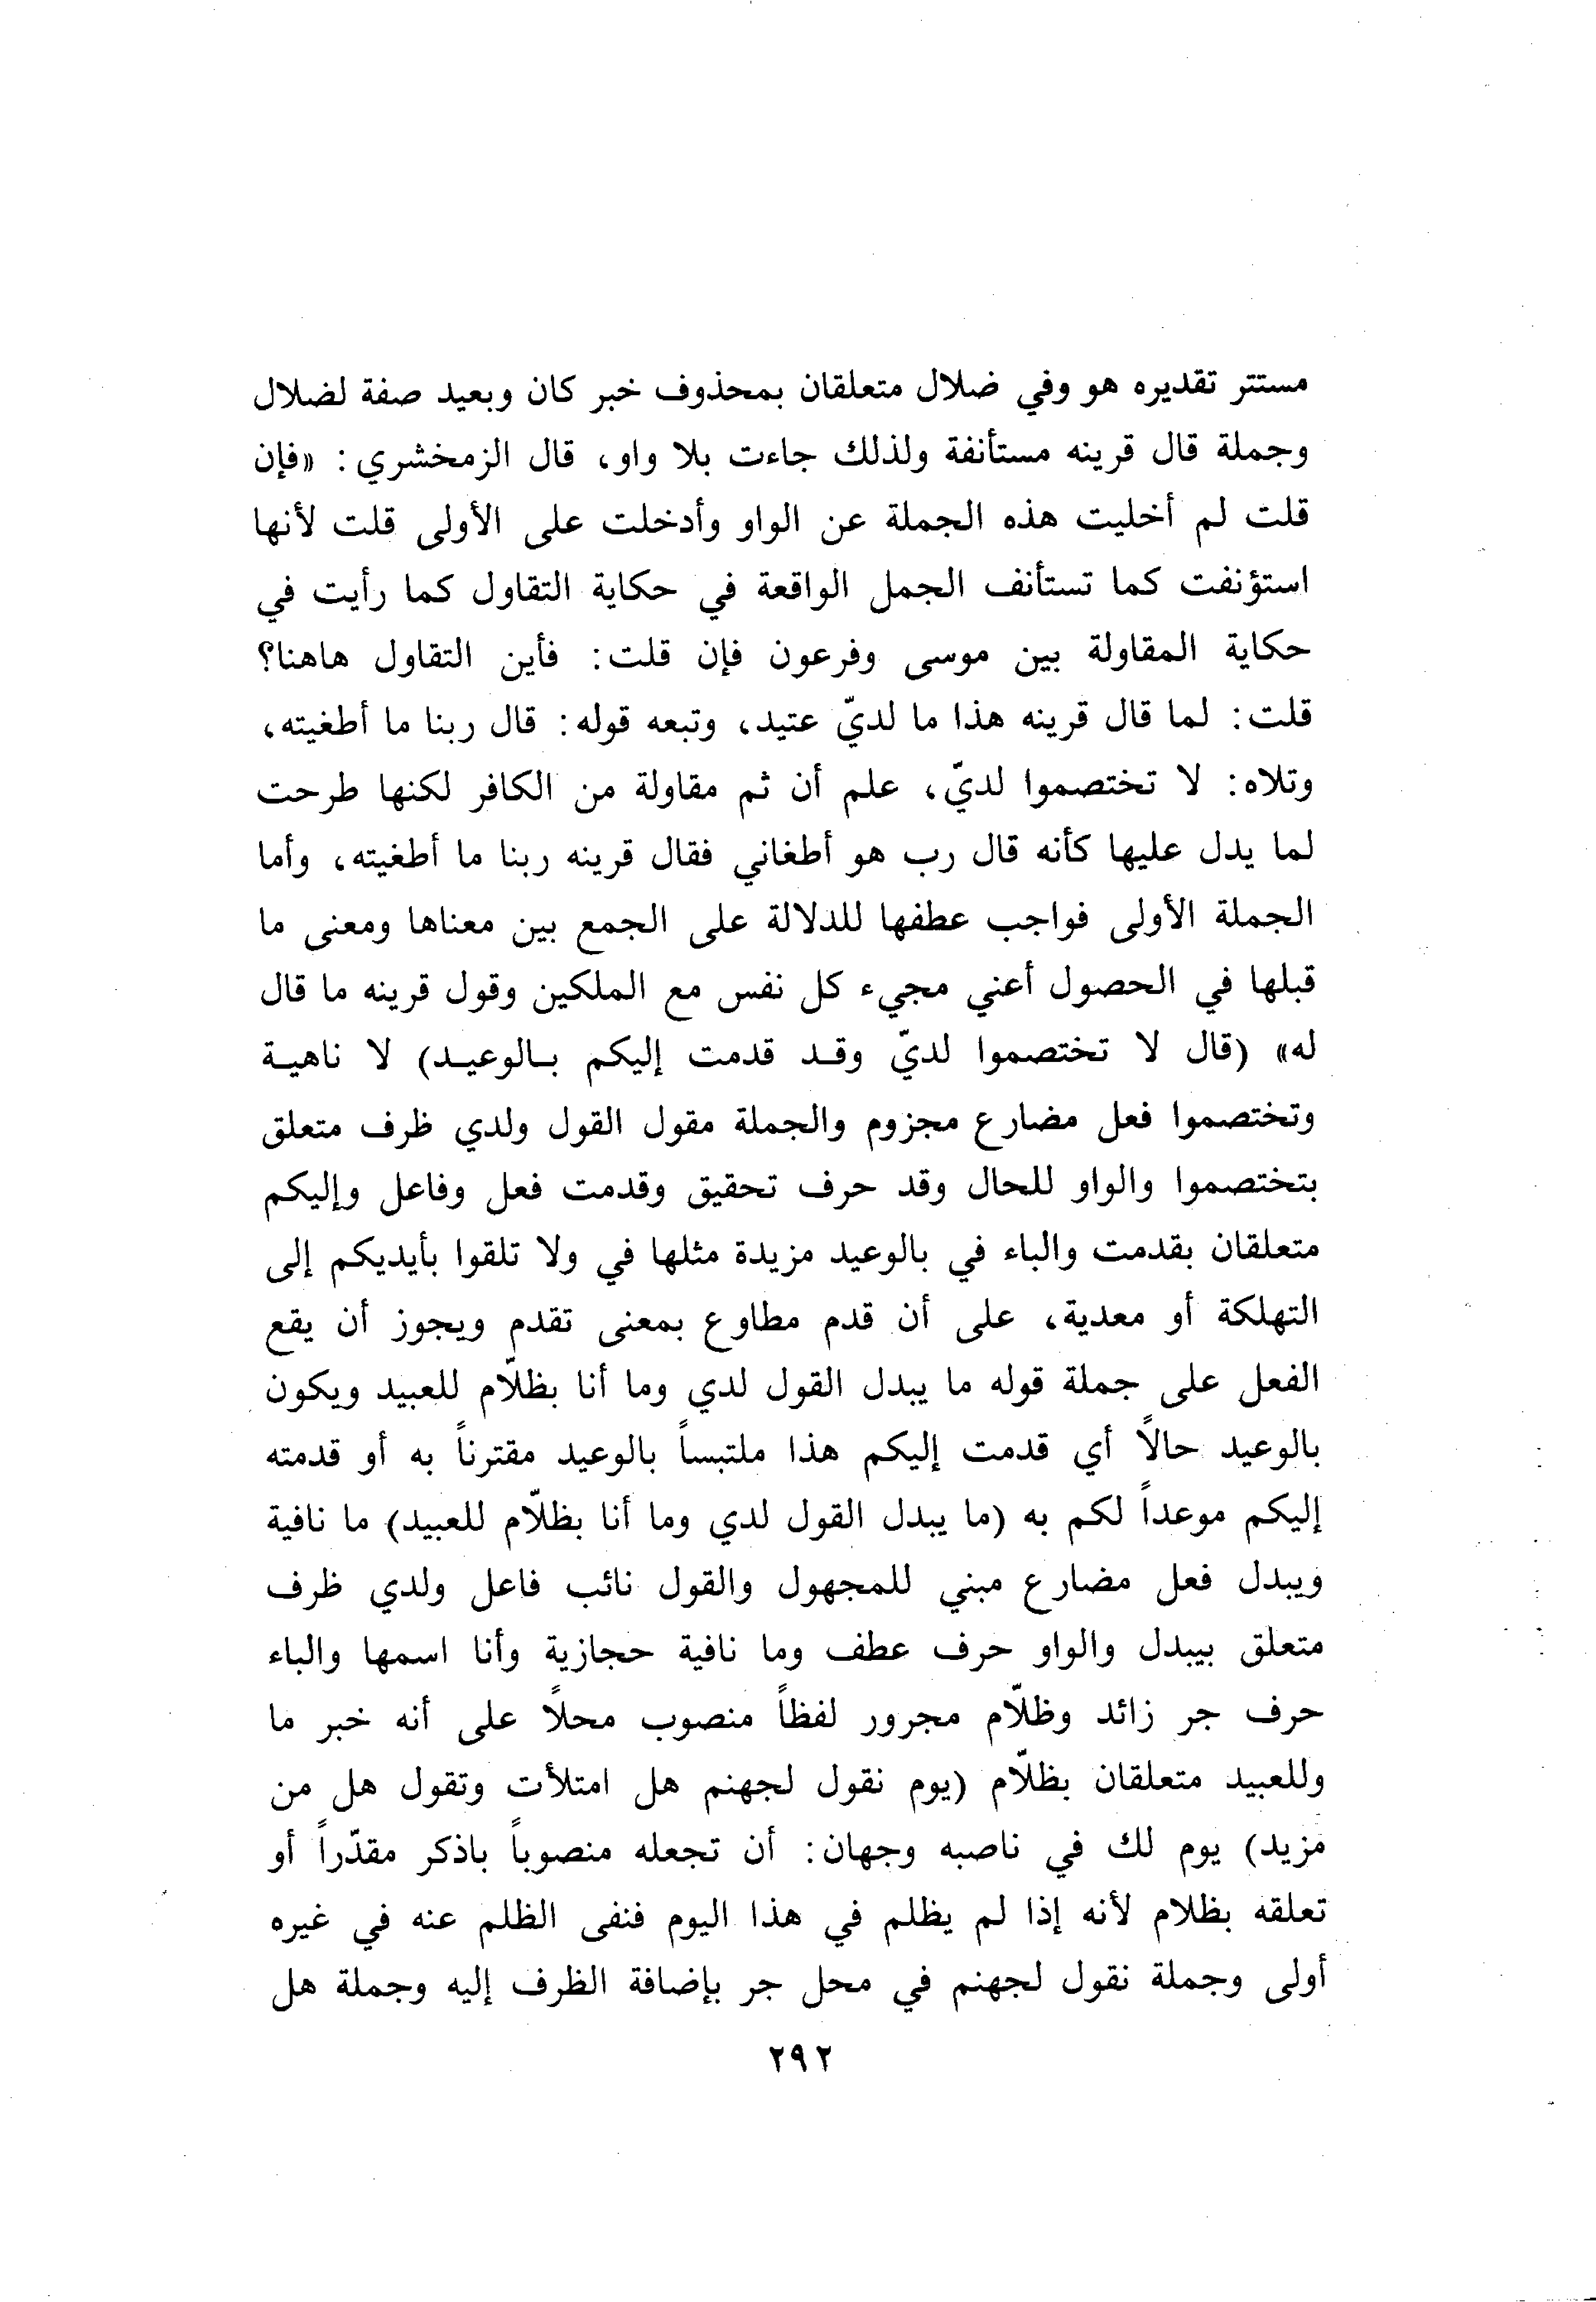 مستتر تقديره هو وفي ضلال متعلقان بمحذوف خبر كان وبعيد صفة لضلال
وجملة قال قرينه مستأنفة ولذلك جاءت بلا واو، قال الزمخشري: «فإن
قلت لم أخليت هذه الجملة عن الواو وأدخلت على الأولى قلت لأنها
استؤنفت كما تستأنف الجمل الواقعة في حكاية التقاول كما رأيت في
حكاية المقاولة بين موسى وفرعون فإن قلت: فأين التقاول هاهنا؟
قلت: لما قال قرينه هذا ما لديّ عتيد، وتبعه قوله: قال ربنا ما أطغيته،
وتلاه: لا تختصموا لديّ، علم أن ثم مقاولة من الكافر لكنها طرحت
لما يدل عليها كأنه قال رب هو أطغاني فقال قرينه ربنا ما أطغيته، وأما
الجملة الأولى فواجب عطفها للدلالة على الجمع بين معناها ومعنى ما
قبلها في الحصول أعني مجيء كل نفس مع الملكين وقول قرينه ما قال
له» (قال لا تختصموا لديّ وقد قدمت إليكم بالوعيد) لا ناهية
وتختصموا فعل مضارع مجزوم والجملة مقول القول ولدي ظرف متعلق
بتختصموا والواو للحال وقد حرف تحقيق وقدمت فعل وفاعل وإليكم
متعلقان بقدمت والباء في بالوعيد مزيدة مثلها في ولا تلقوا بأيديكم إلى
التهلكة أو معدية، على أن قدم مطاوع بمعنى تقدم ويجوز أن يقع
الفعل على جملة قوله ما يبدل القول لدي وما أنا بظلّام للعبيد ويكون
بالوعيد حالاً أي قدمت إليكم هذا ملتبساً بالوعيد مقترناً به أو قدمته
إليكم موعداً لكم به (ما يبدل القول لدي وما أنا بظلّام للعبيد) ما نافية
ويبدل فعل مضارع مبني للمجهول والقول نائب فاعل ولدي ظرف
متعلق بيبدل والواو حرف عطف وما نافية حجازية وأنا اسمها والباء
حرف جر زائد وظلّام مجرور لفظاً منصوب محلاً على أنه خبر ما
وللعبيد متعلقان بظلّام (يوم نقول لجهنم هل امتلأت وتقول هل من
مزيد) يوم لك في ناصبه وجهان: أن تجعله منصوباً باذكر مقدّراً أو
تعلقه بظلام لأنه إذا لم يظلم في هذا اليوم فنفى الظلم عنه في غيره
أولى وجملة نقول لجهنم في محل جر بإضافة الظرف إليه وجملة هل
٢٩٢